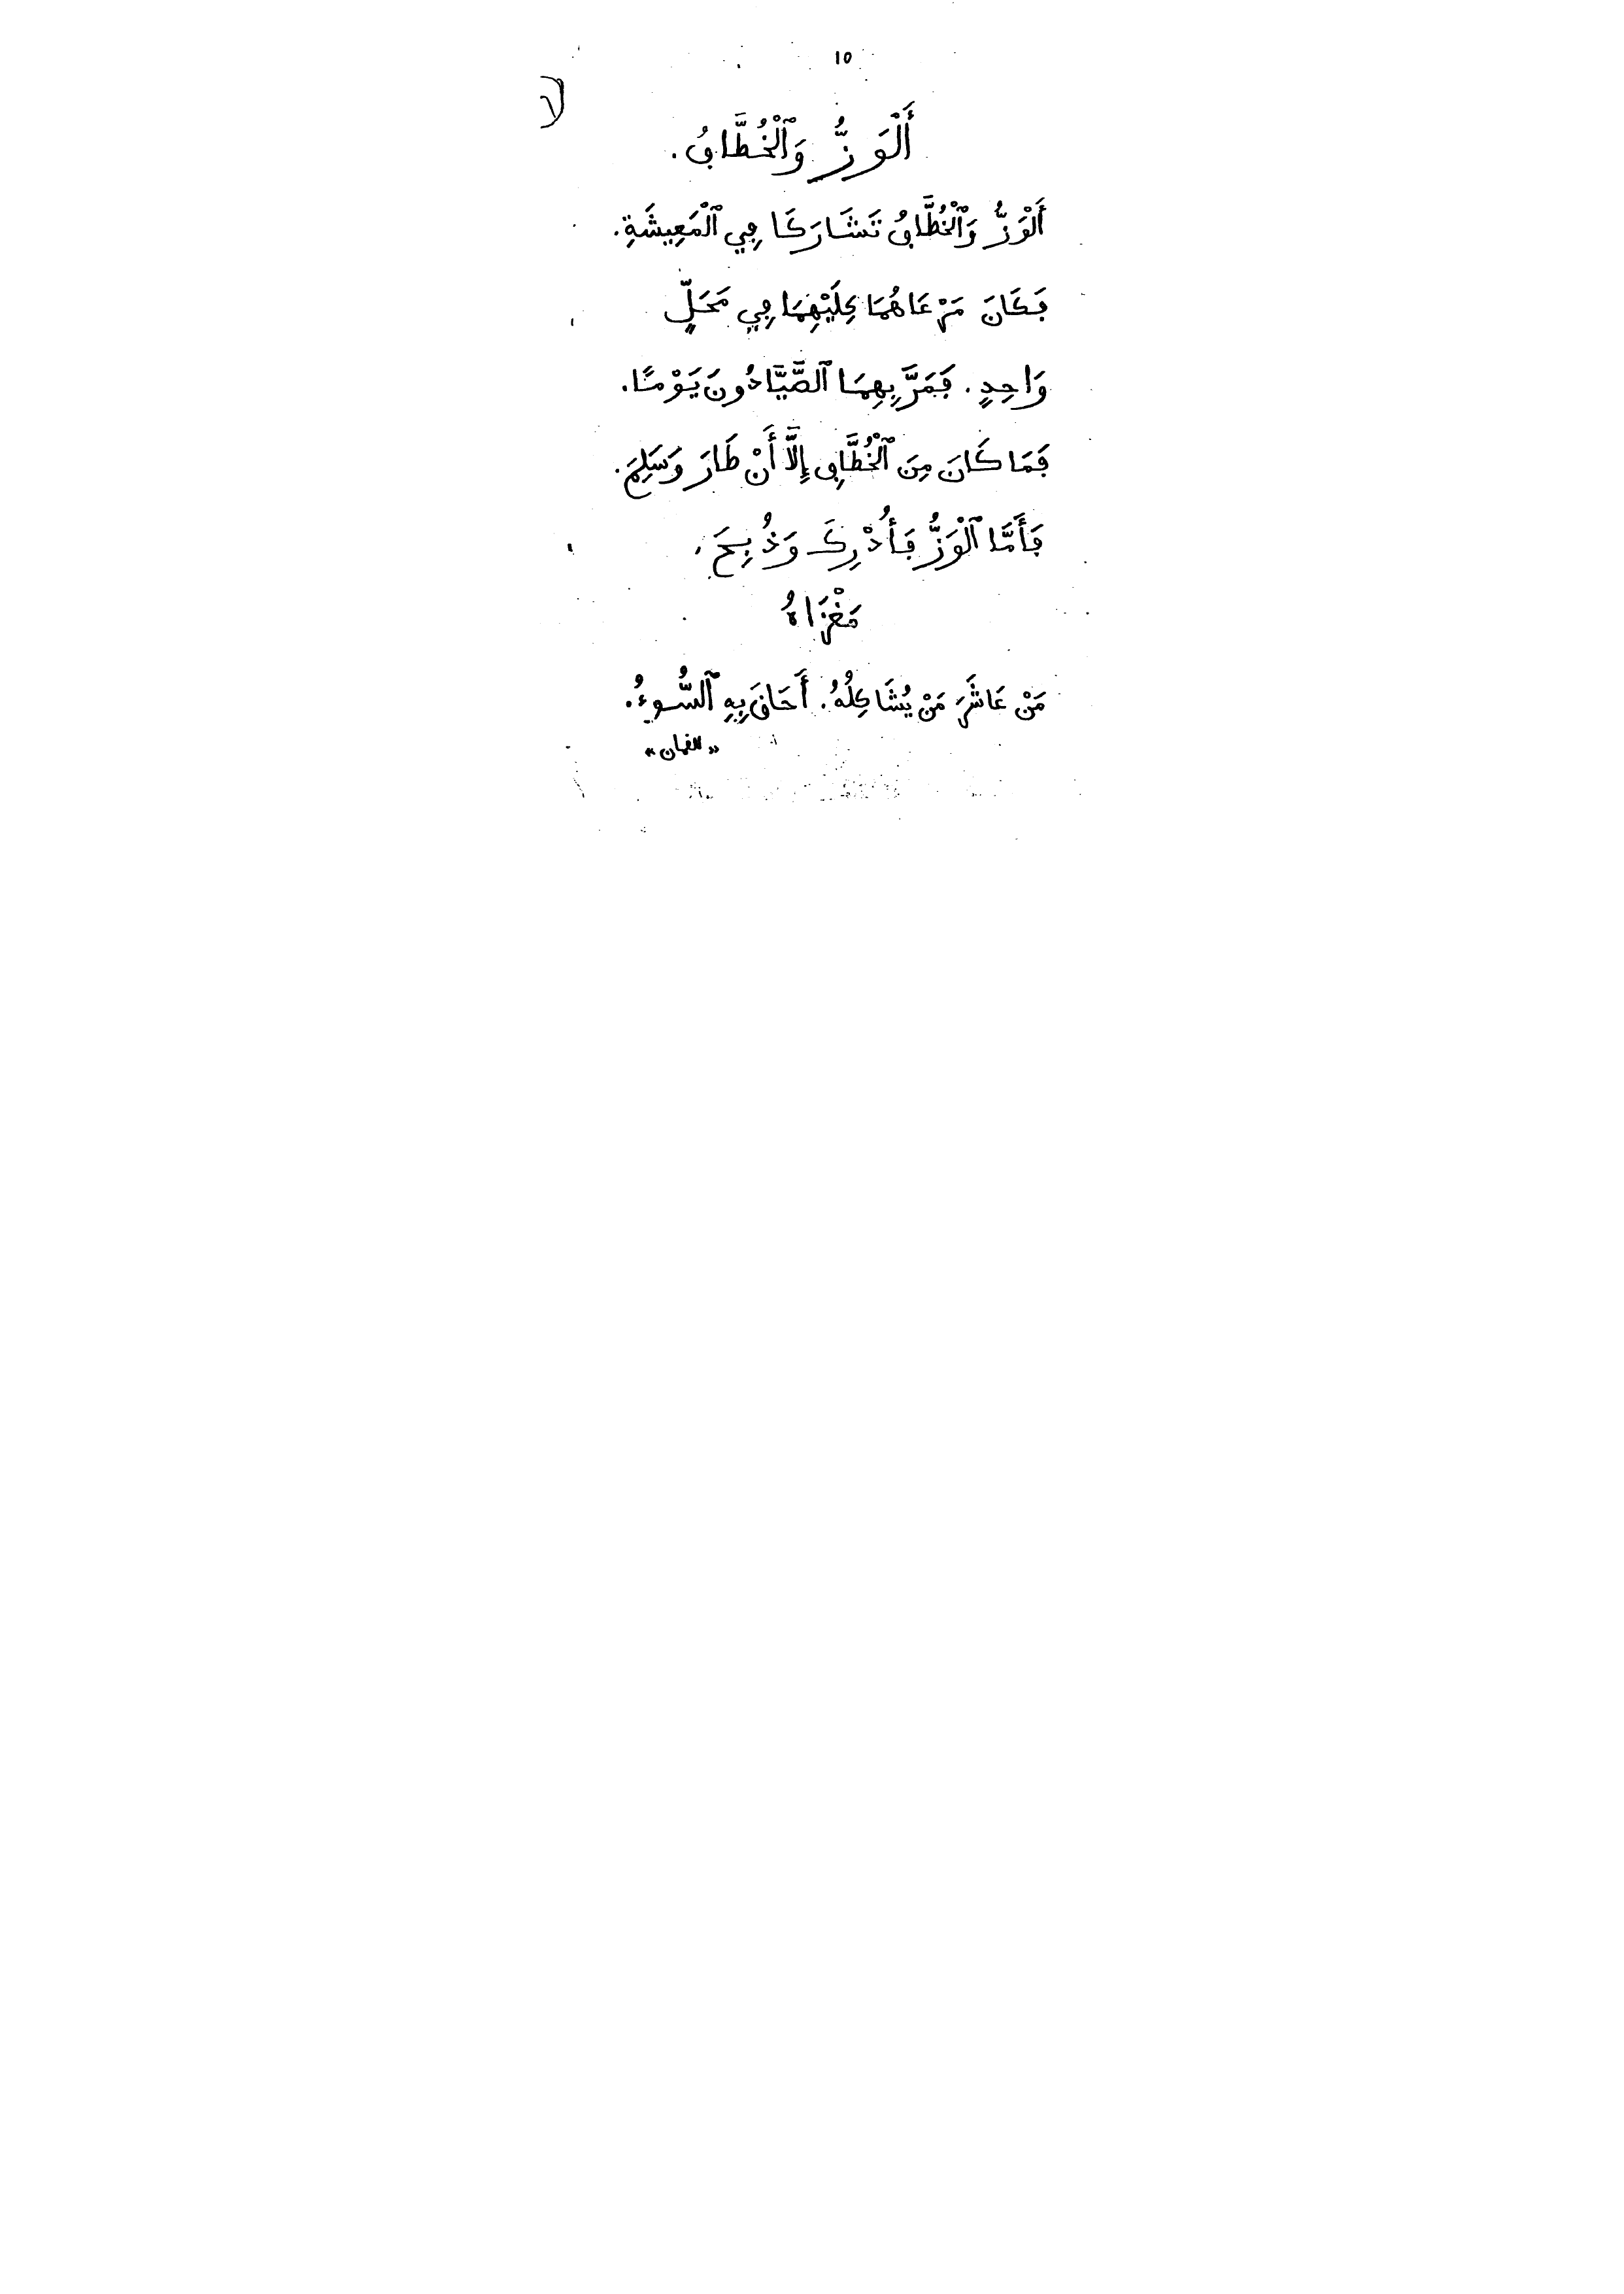 ١٥
أَلْوَزُّ وَٱلْخُطَّافُ.
أَلْوَزُّ وَٱلْخُطَّافُ تَشَارَكَا فِي ٱلْمَعِيشَةِ.
فَكَانَ مَرْعَاهُمَا كِلَيْهِمَا فِي مَحَلٍّ
وَاحِدٍ. فَمَرَّ بِهِمَا ٱلصَّيَّادُونَ يَوْمًا.
فَمَا كَانَ مِنَ ٱلْخُطَّافِ إِلَّا أَنْ طَارَ وَسَلِمَ.
فَأَمَّا ٱلْوَزُّ فَأُدْرِكَ وَذُبِحَ.
مَغْزَاهُ
مَنْ عَاشَرَ مَنْ يُشَاكِلُهُ. أَحَاقَ بِهِ ٱلسُّوءُ.
«لقمان»